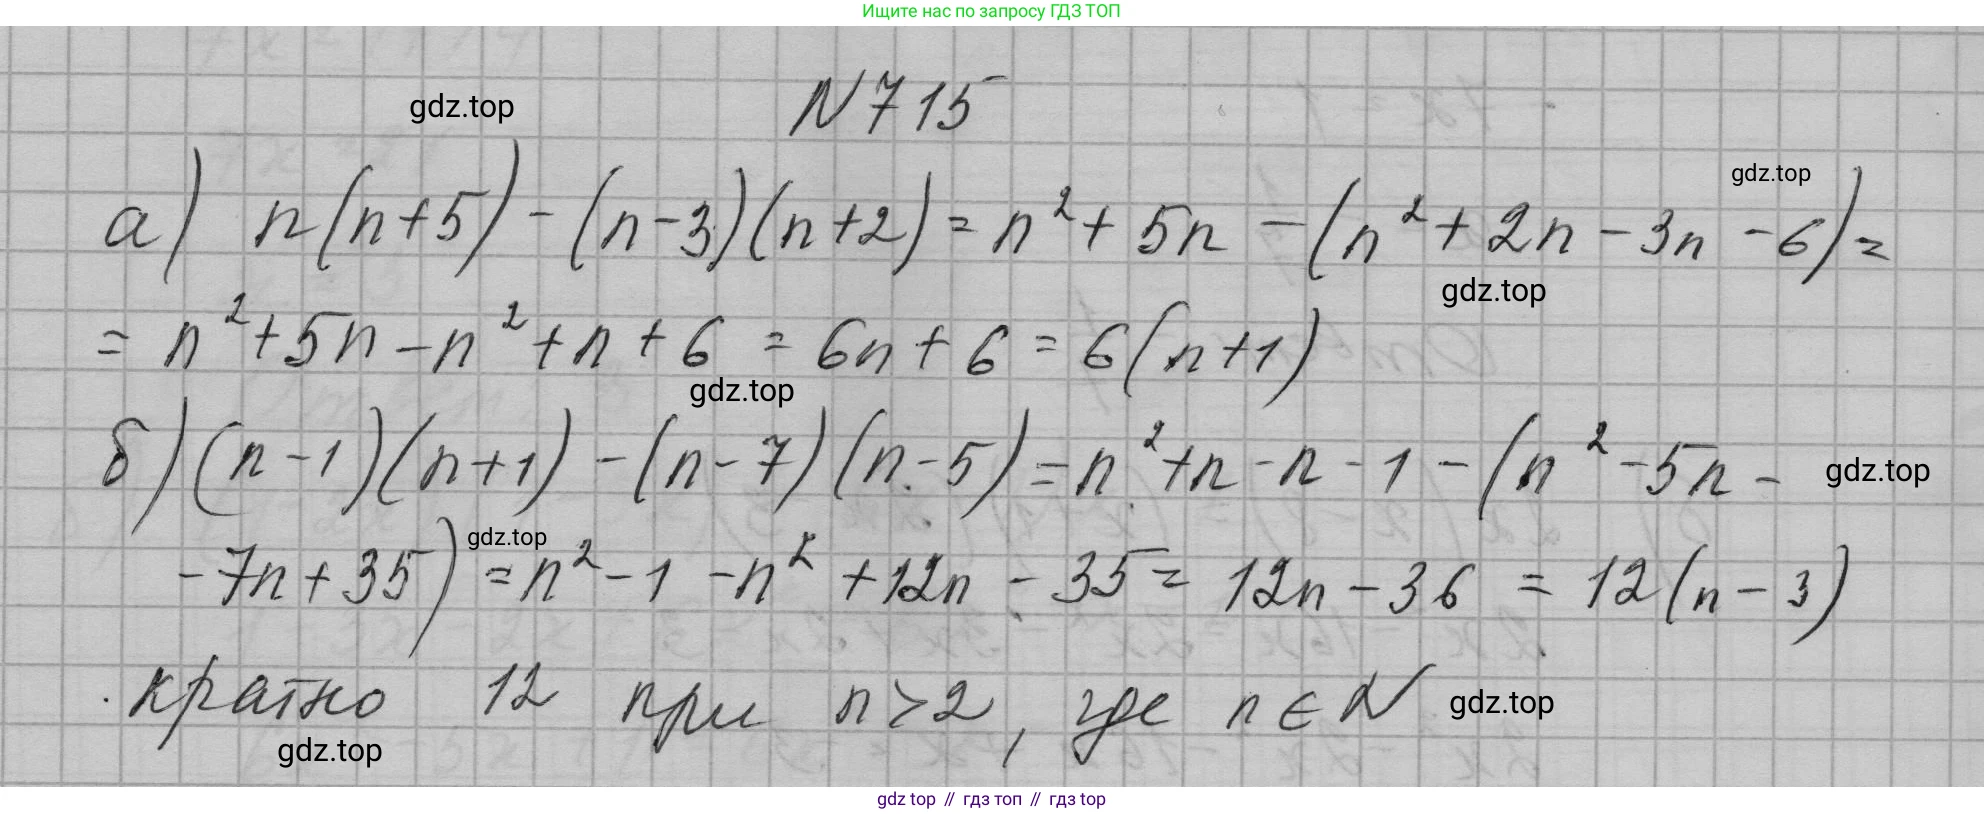 Ищите нас по запросу ГДЗ ТОП
N 715
gdz.top
а) n(n+5) - (n-3)(n+2) = n² + 5n - (n² + 2n - 3n - 6) =
gdz.top
gdz.top
= n² + 5n - n² + n + 6 = 6n + 6 = 6(n+1)
gdz.top
б) (n-1)(n+1) - (n-7)(n-5) = n² + n - n - 1 - (n² - 5n -
gdz.top
- 7n + 35) = n² - 1 - n² + 12n - 35 = 12n - 36 = 12(n - 3)
gdz.top
кратно 12 при n > 2, где n ∈ N
gdz.top
gdz.top
gdz top // гдз топ // гдз top